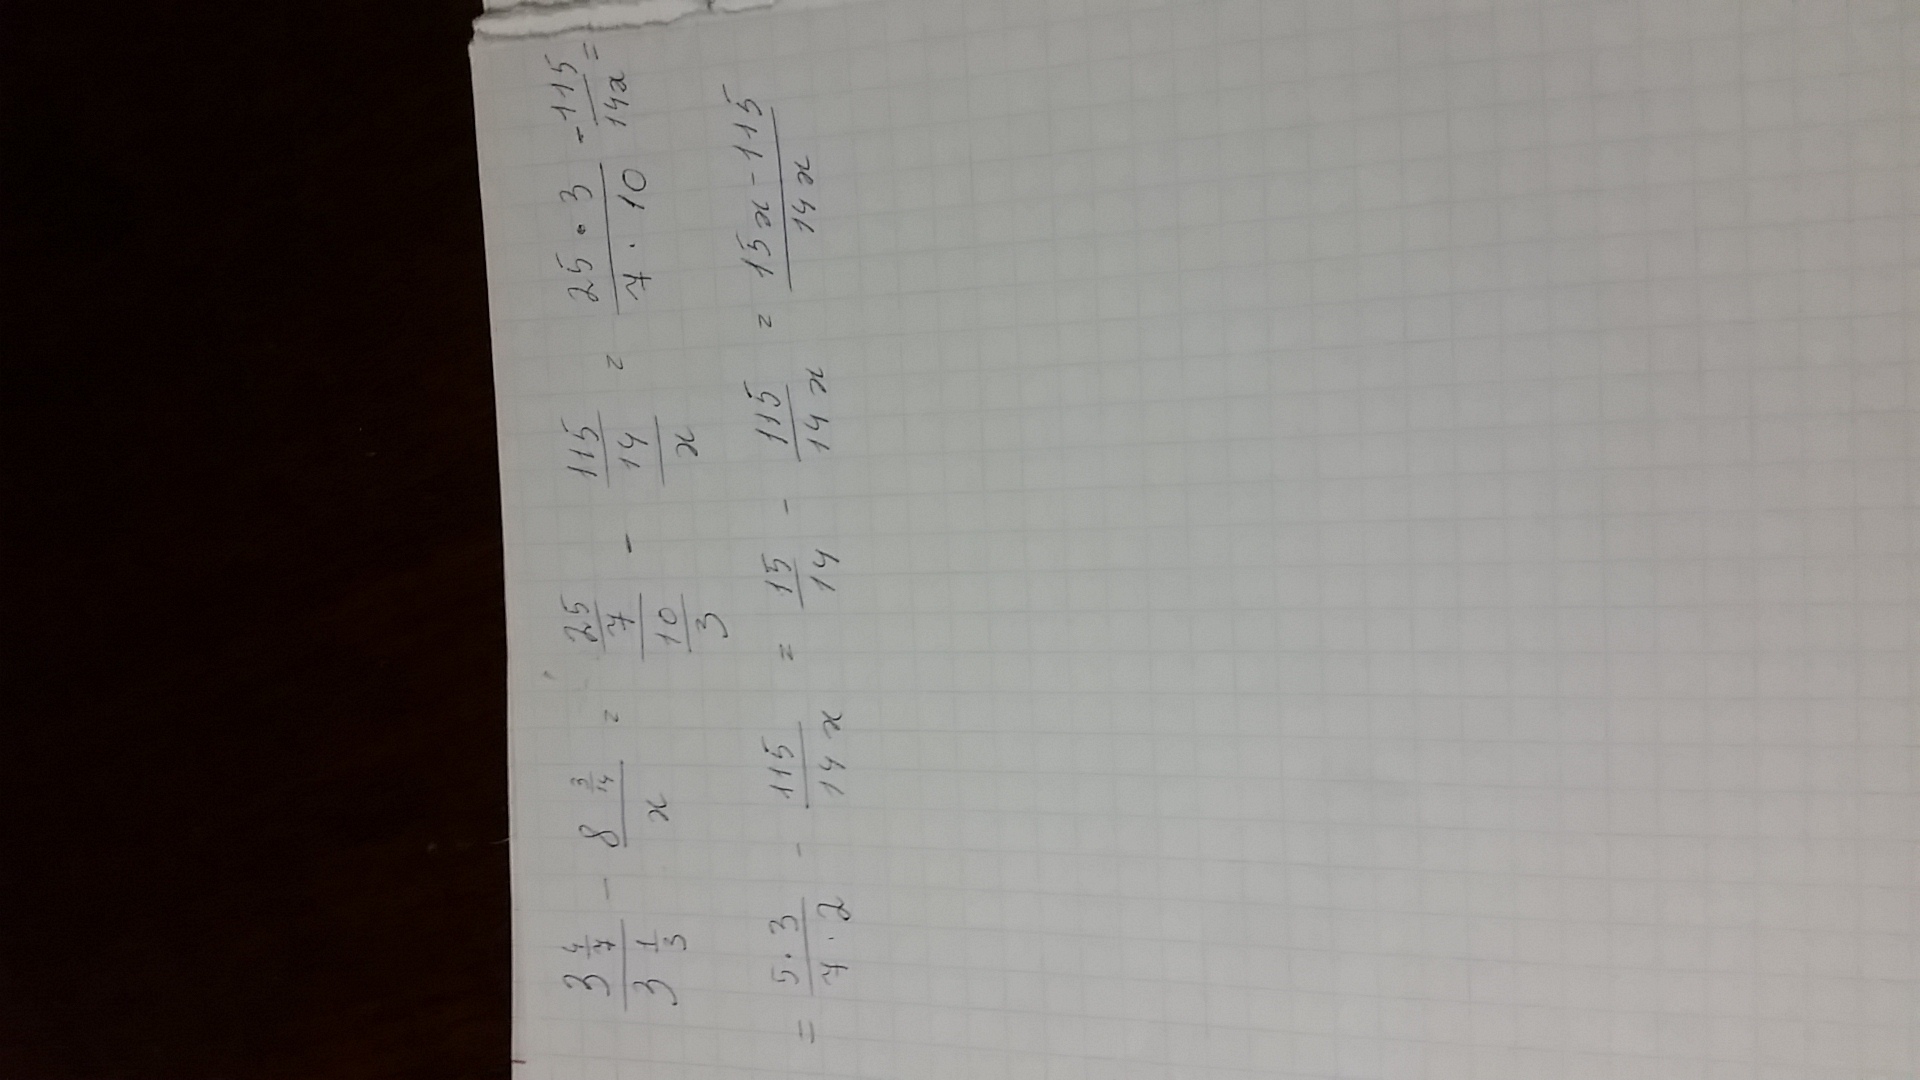 \frac{3\frac{4}{7}}{3\frac{1}{3}} - \frac{8\frac{3}{14}}{x} = \frac{\frac{25}{7}}{\frac{10}{3}} - \frac{\frac{115}{14}}{x} = \frac{25 \cdot 3}{7 \cdot 10} - \frac{115}{14x} =
= \frac{5 \cdot 3}{7 \cdot 2} - \frac{115}{14x} = \frac{15}{14} - \frac{115}{14x} = \frac{15x - 115}{14x}